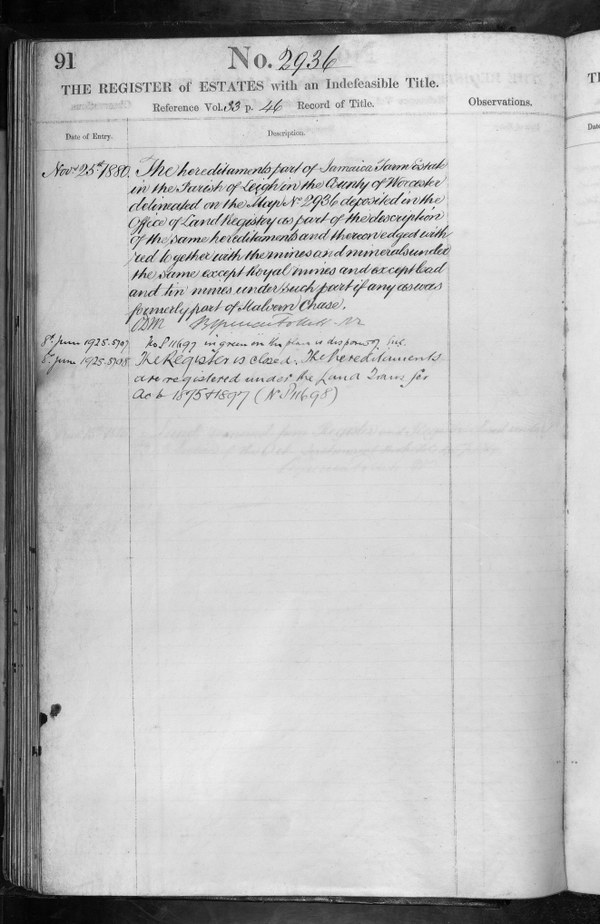 91
No. 2936
THE REGISTER of ESTATES with an Indefeasible Title.
Reference Vol. 33 p. 46 Record of Title.
Observations.
Date of Entry.
Description.
Novr 25th 1880. The hereditaments part of Jamaica Farm Estate
in the Parish of Leigh in the County of Worcester
delineated on the Map No 2936 deposited in the
Office of Land Registry as part of the description
of the same hereditaments and thereon edged with
red together with the mines and minerals under
the same except Royal mines and except lead
and tin mines under such part if any as was
formerly part of Malvern Chase.
8th June 1925. 5707 No P 11697 in green on the plan is
June 1925. 5708 The Register is closed. The hereditaments
are registered under the Land Transfer
Acts 1875 & 1897 (No P 11698)